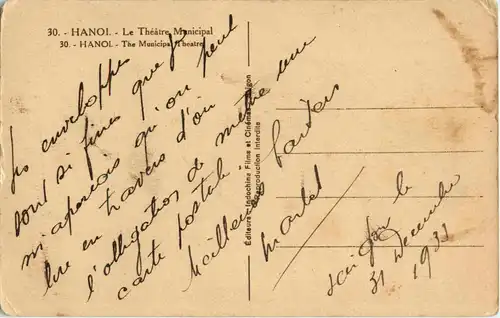 30. - HANOI. - Le Théâtre Municipal
30. - HANOI. - The Municipal Theatre
les enveloppes
sont si fines que je
m'aperçois qu'on peut
lire en travers d'où
l'obligation de mettre une
carte postale
Meilleures
Editeurs: Indochine Films et Cinémas - Saigon
Reproduction Interdite
Saigon le
31 Decembre
1933